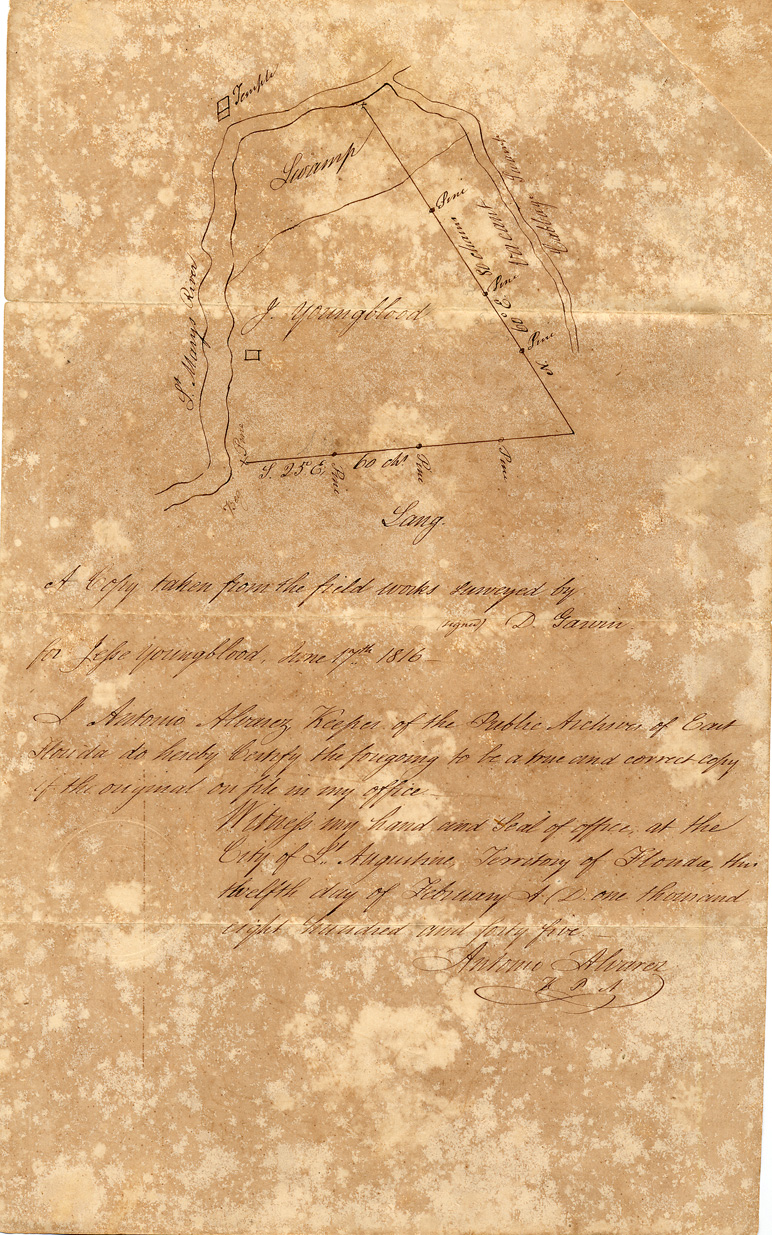 Temple
Swamp
Pine
Vacant
St Marys River
J. Youngblood
Pine
80 chains
N 60° E
Pine
Pine
S. 25 E, 60 chs
Beg
Pine
Pine
Pine
Lang.
A Copy taken from the field works surveyed by
(signed) D. Garvin.
for Jesse Youngblood, June 17th 1816—
I Antonio Alvarez Keeper of the Public Archives of East
Florida do hereby Certify the forgoing to be a true and correct copy
of the original on file in my office.
Witness my hand and Seal of office, at the
City of St Augustine, Territory of Florida, this
twelfth day of February A. D. one thousand
eight hundred and forty five.—
Antonio Alvarez
K P A